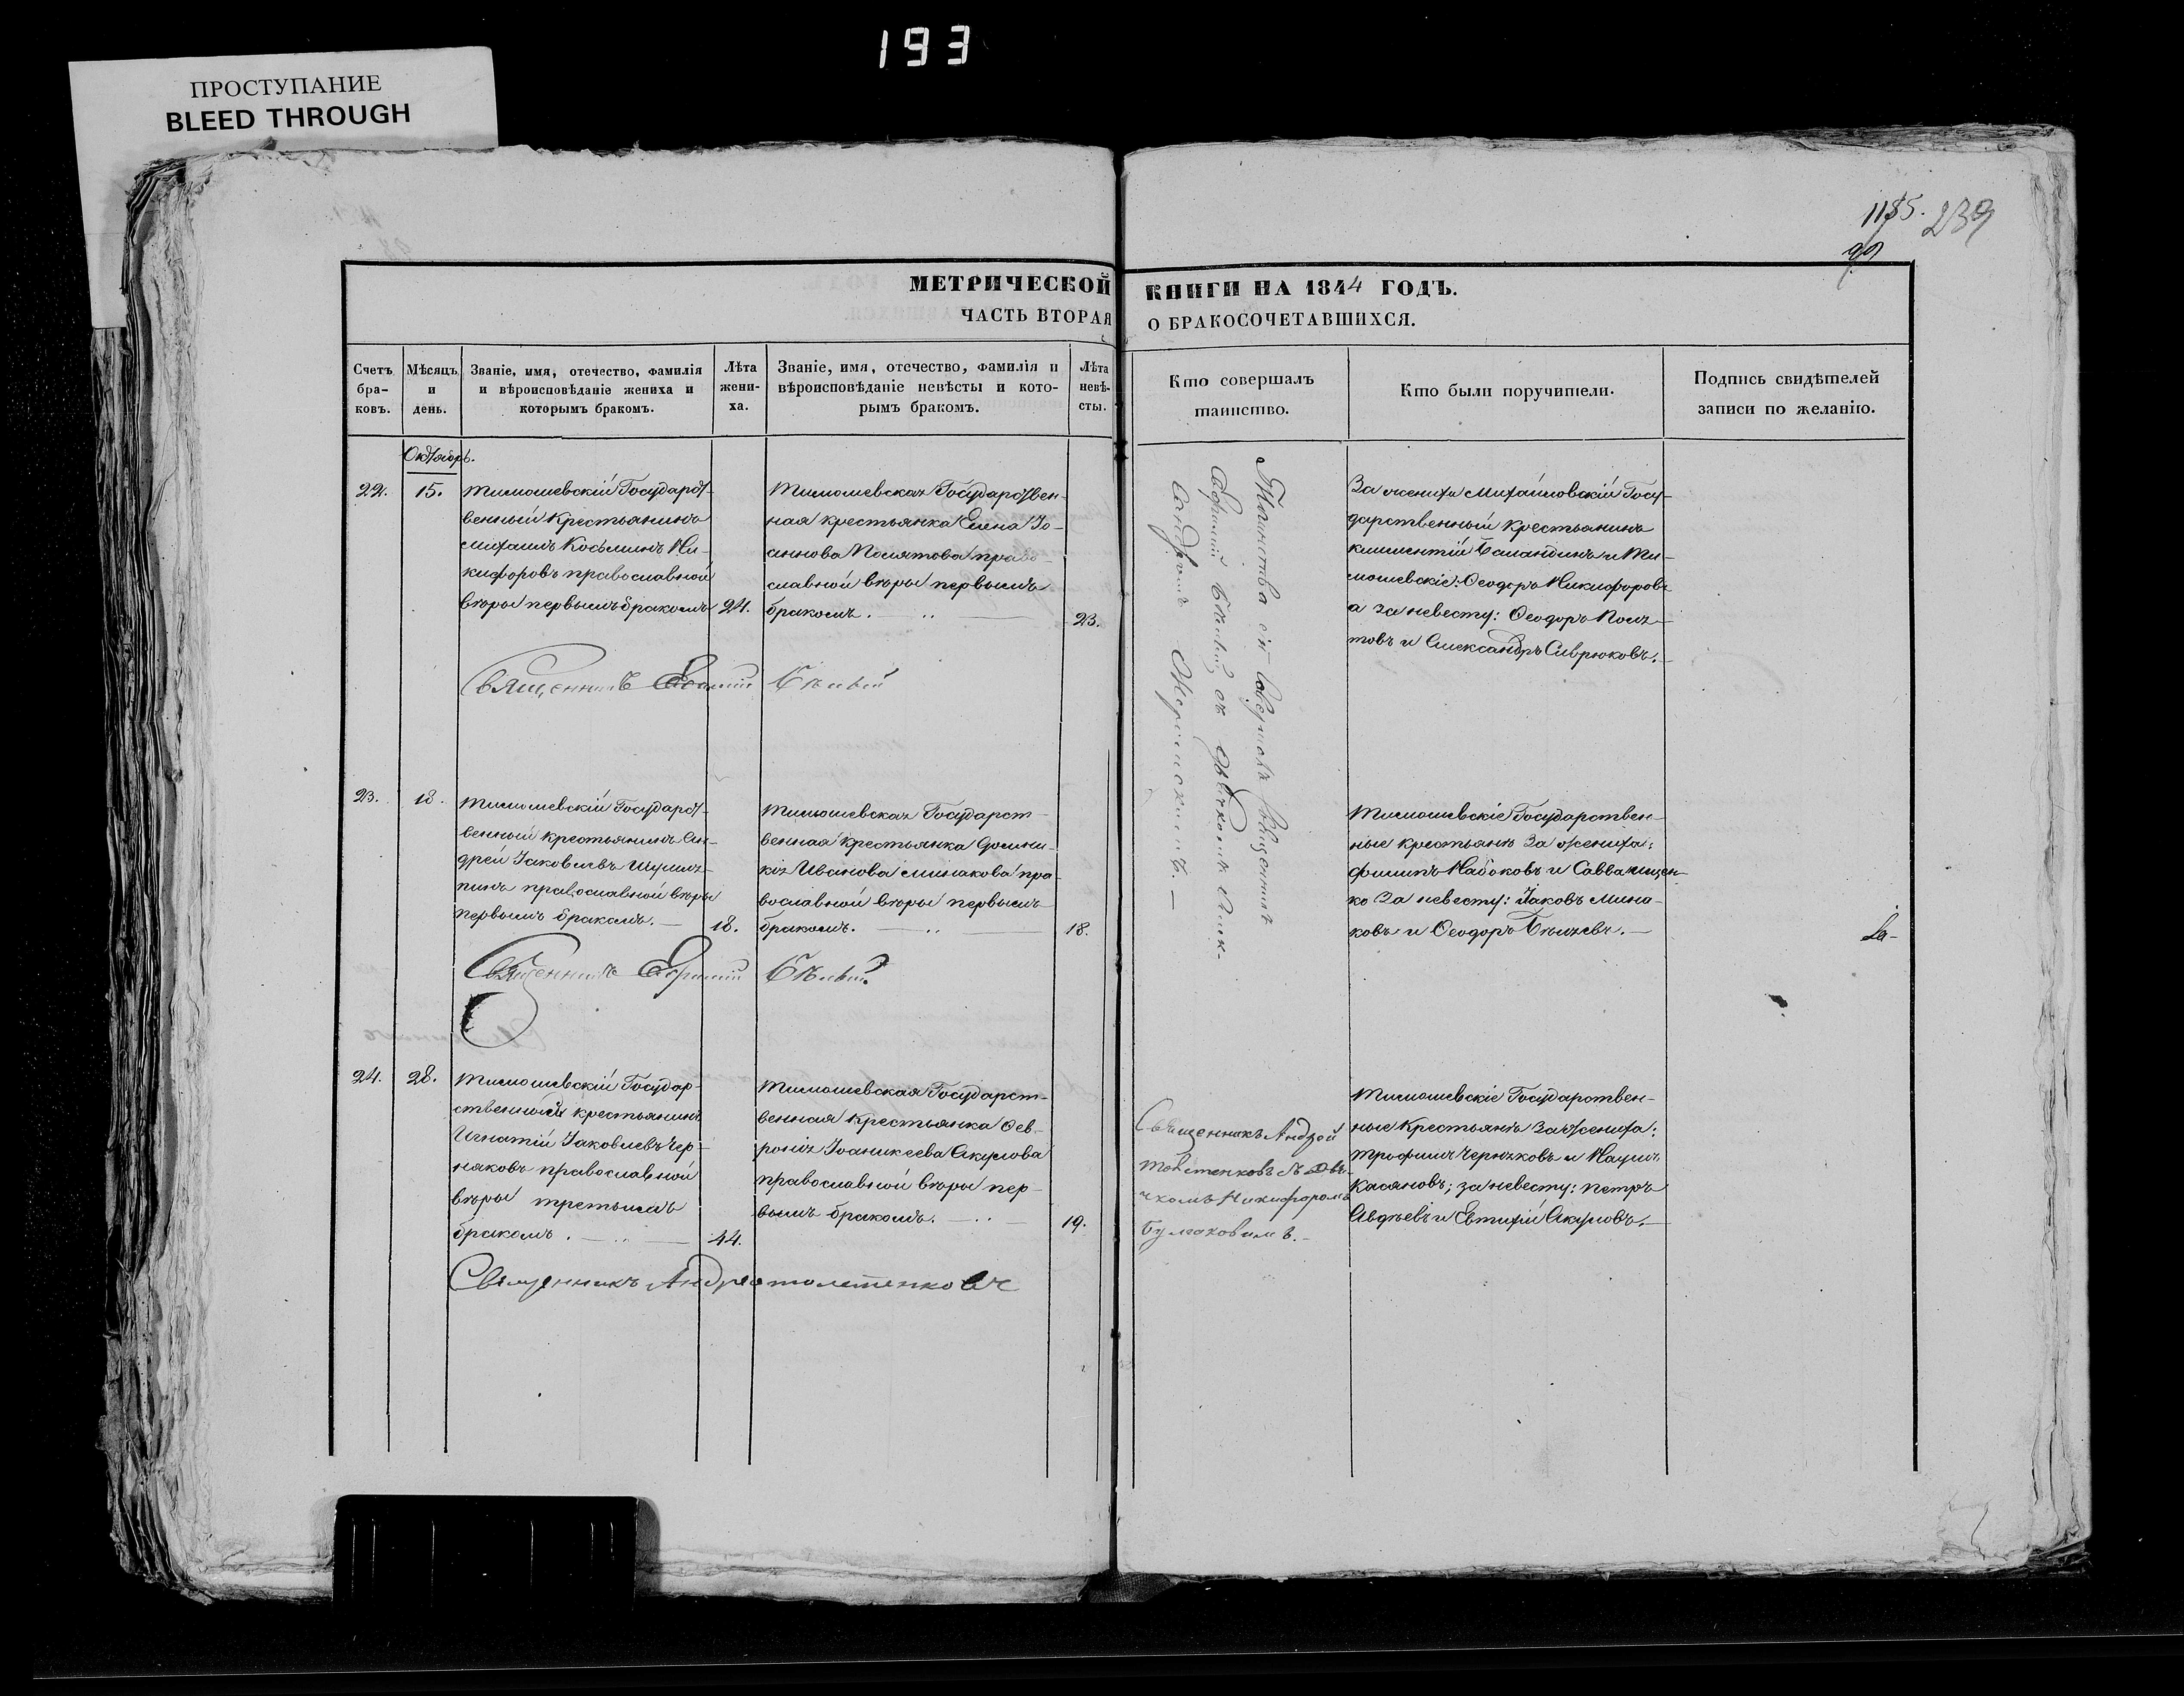 193
ПРОСТУПАНИЕ
BLEED THROUGH
1185. 239
99
МЕТРИЧЕСКОЙ КНИГИ НА 1844 ГОДЪ.
ЧАСТЬ ВТОРАЯ О БРАКОСОЧЕТАВШИХСЯ.
Счетъ бра-ковъ.
Мѣсяцъ и день.
Званіе, имя, отечество, фамилія
и вѣроисповѣданіе жениха и
которымъ бракомъ.
Лѣта жени-ха.
Званіе, имя, отечество, фамилія и
вѣроисповѣданіе невѣсты и кото-
рымъ бракомъ.
Лѣта невѣ-сты.
Кто совершалъ
таинство.
Кто были поручители.
Подпись свидѣтелей
записи по желанію.
Октябрь.
22.
15.
Тимошевскій Государст-
венный Крестьянинъ
Михаилъ Косьминъ Ни-
кифоровъ православной
вѣры первымъ бракомъ
24.
Тимошевская Государствен-
ная крестьянка Елена Іо-
аннова Полятова право-
славной вѣры первымъ
бракомъ.
23.
Таинства сіи совершалъ Священникъ
Ефимій Бѣлый съ дьячкомъ Алек-
сандромъ
За жениха Михайловскій Госу-
дарственный крестьянинъ
Климентій Баландинъ и Ти-
мошевскіе: Ѳеодоръ Никифоровъ
а за невесту: Ѳеодоръ Поля-
товъ и Александръ Сиврюковъ.
Священникъ Бѣлый
23.
18.
Тимошевскій Государст-
венный крестьянинъ Ан-
дрей Іаковлевъ Шуля-
пинъ православной вѣры
первымъ бракомъ.
18.
Тимошевская Государст-
венная крестьянка Домни-
кія Иванова Минакова пра-
вославной вѣры первымъ
бракомъ.
18.
Тимошевскіе Государствен-
ные крестьяне За жениха:
Филипъ Набоковъ и Савва Ищен-
ко За невесту: Іаковъ Мина-
ковъ и Ѳеодоръ Бѣляевъ.
Священникъ Ефимій Бѣлый
24.
28.
Тимошевскій Государ-
ственный крестьянинъ
Игнатій Іаковлевъ Чер-
няковъ православной
вѣры третьимъ
бракомъ.
44.
Тимошевская Государст-
венная крестьянка Ѳев-
ронія Іоаникеева Акулова
православной вѣры пер-
вымъ бракомъ.
19.
Священникъ Андрей
Толстенковъ съ дья-
чкомъ Никифоромъ
Булгаковимъ.
Тимошевскіе Государствен-
ные Крестьяне За жениха:
Трофимъ Черняковъ и Наумъ
Касяновъ; за невесту: Петръ
Авдѣевъ и Евтихій Акуловъ.
Священникъ Андрей Толстенковъ